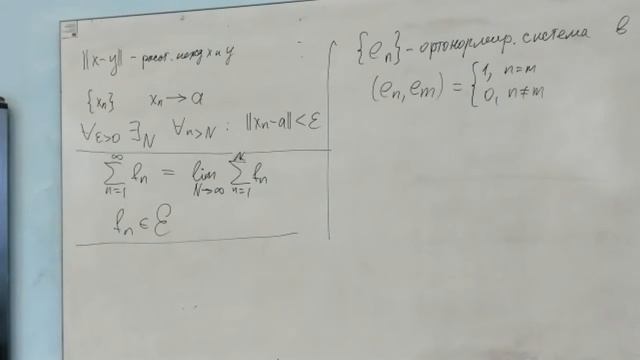 ||x-y|| - расст. между x и y
{xₙ} xₙ → a
∀ε>0 ∃N ∀n>N : ||xₙ-a|| < ε
∑ₙ₌₁^∞ fₙ = lim_{N→∞} ∑ₙ₌₁^N fₙ
fₙ ∈ ℰ
{eₙ} - ортонормир. система в
(eₙ, eₘ) = { 1, n=m
0, n≠m